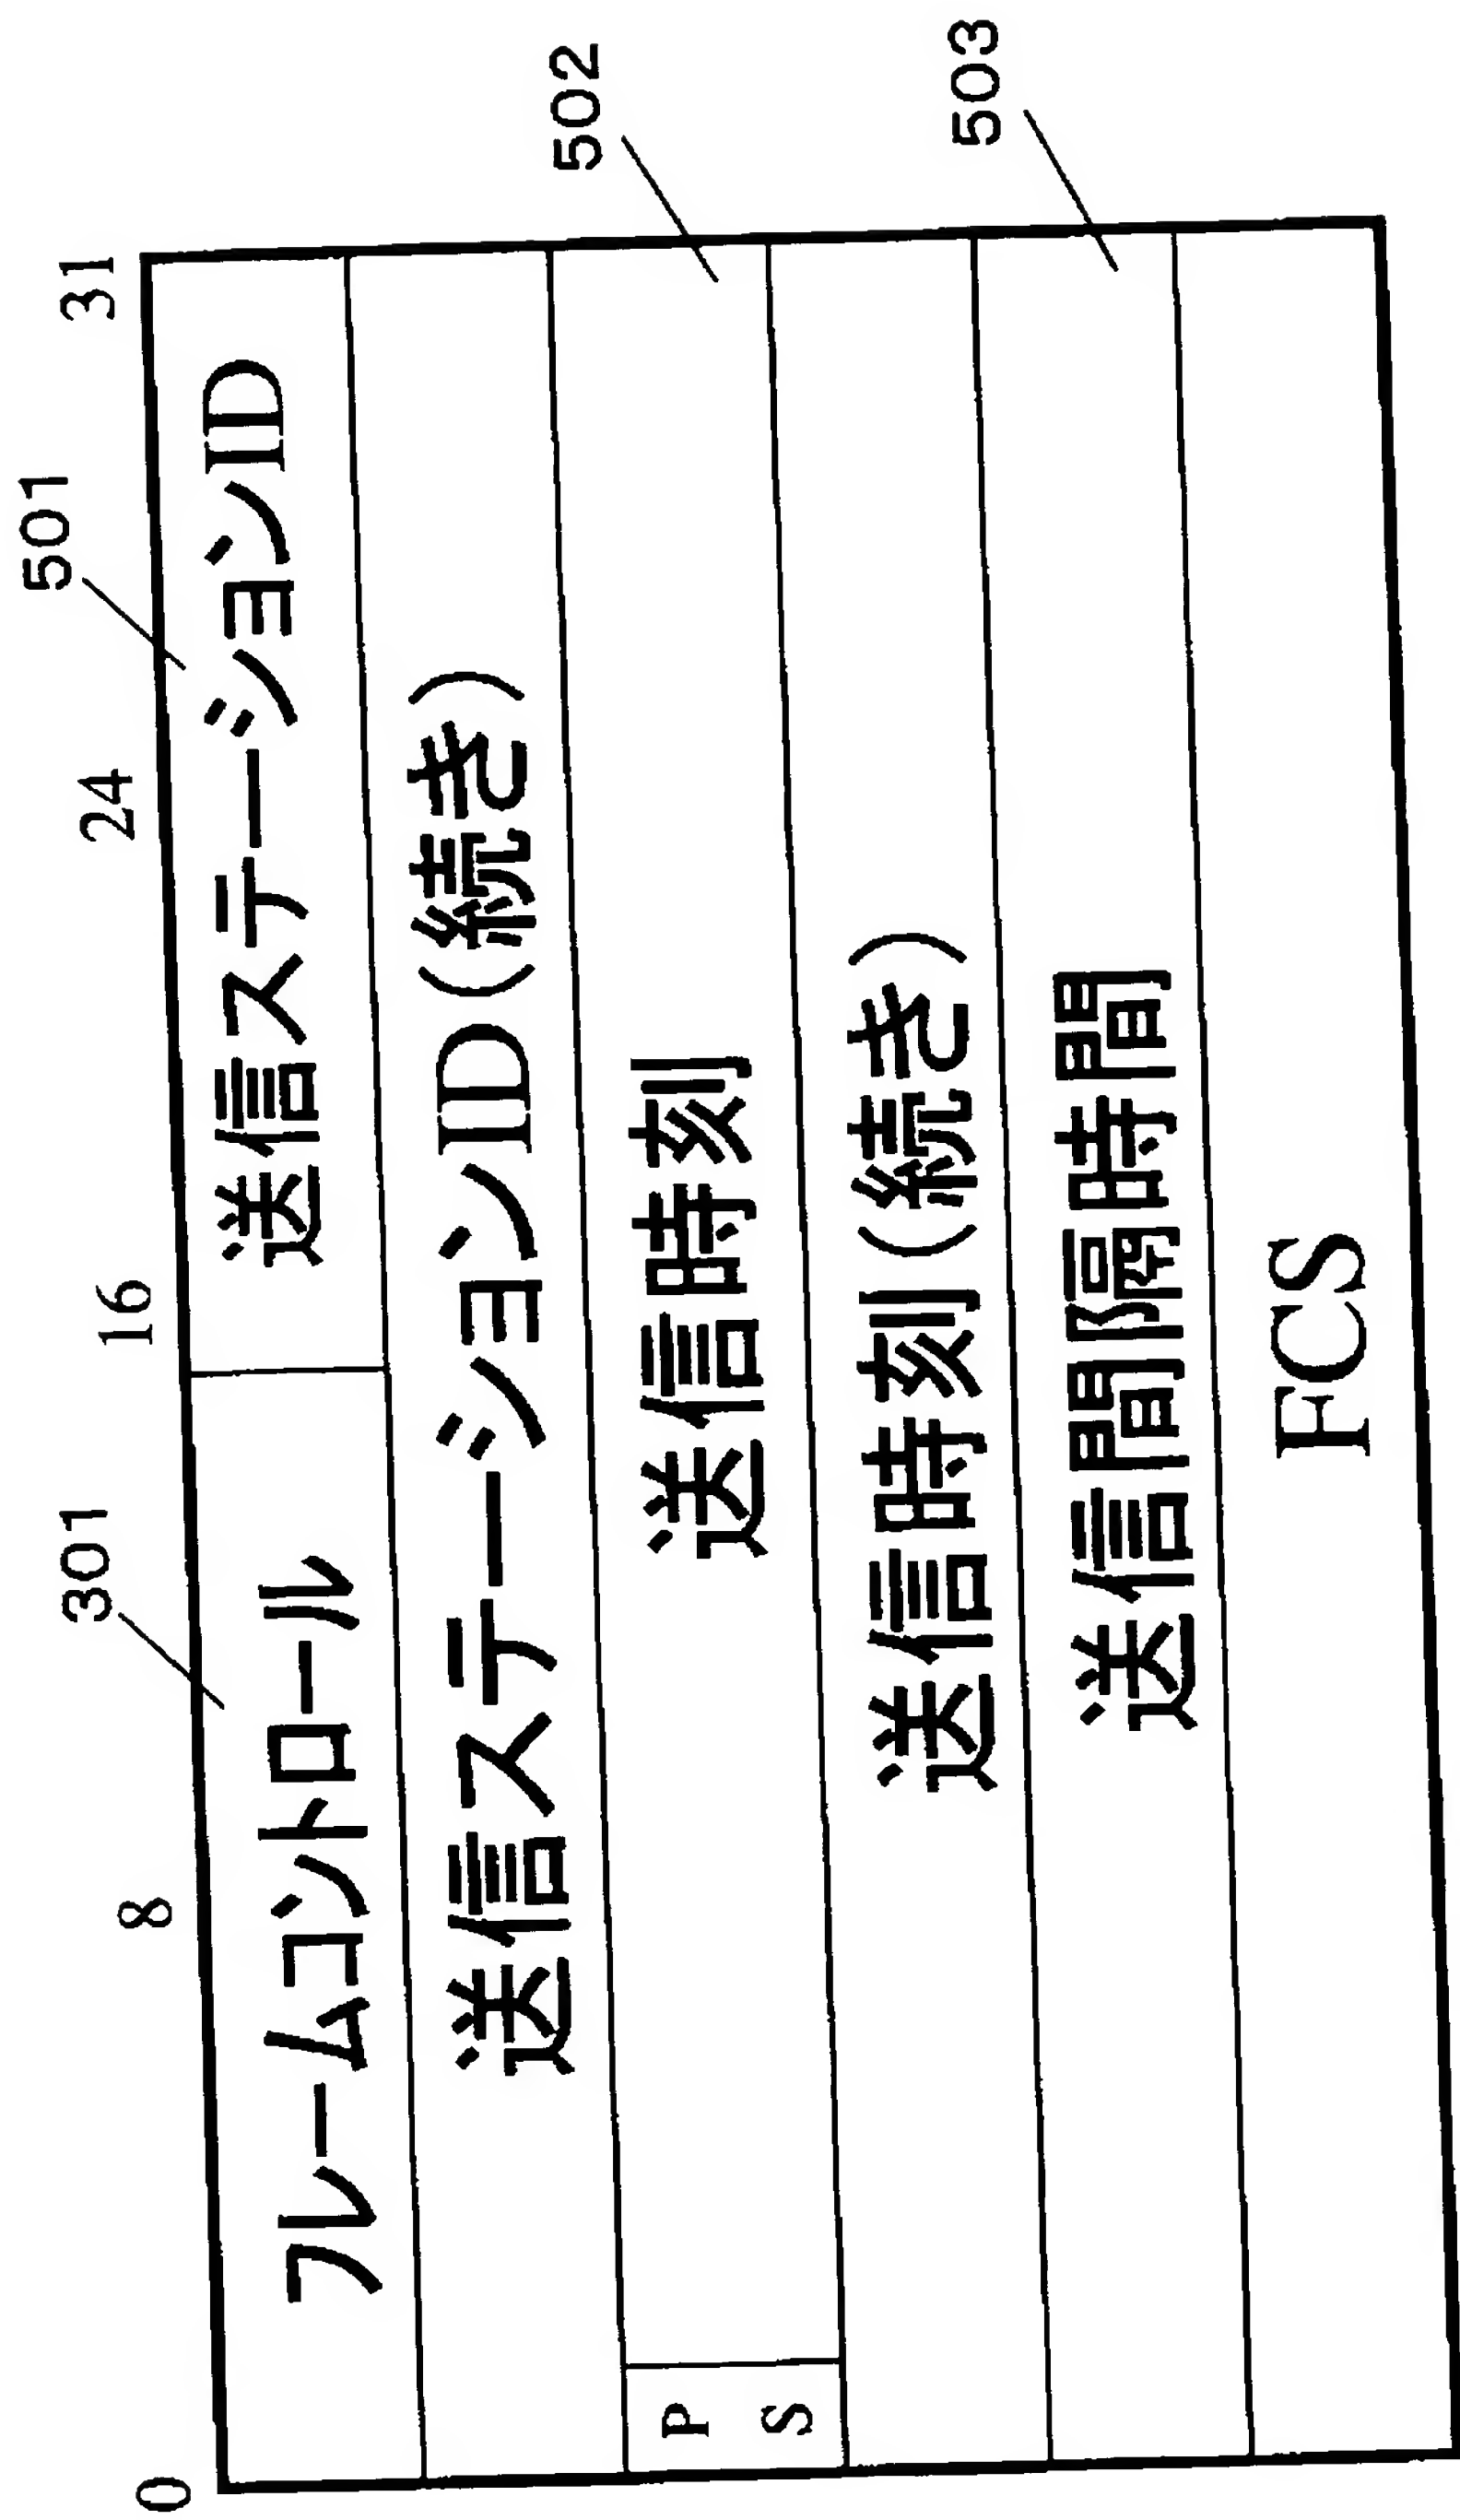 0 8 16 24 31
301 501
フレームコントロール 送信ステーションID
送信ステーションID(続き)
PS 送信時刻 502
送信時刻(続き)
送信間隔時間 503
FCS